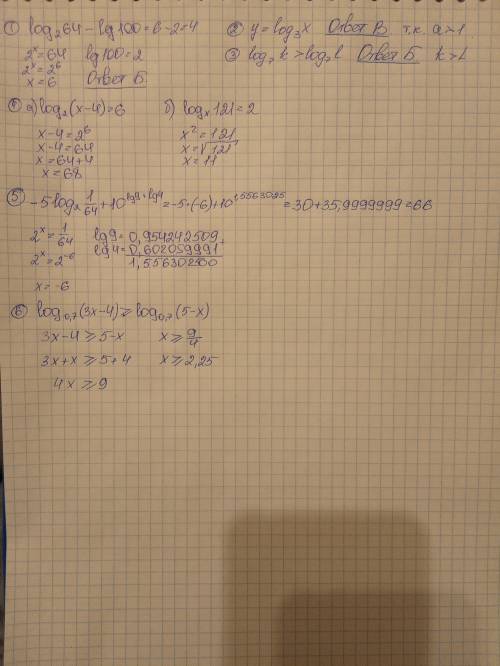 ① log₂64 - lg100 = 6 - 2 = 4
2ˣ = 64 lg100 = 2
2ˣ = 2⁶
x = 6 Ответ Б
② y = log₃x Ответ В т.к. a > 1
③ log₇k > log₇l Ответ Б k > l
④ а) log₂(x-4) = 6
x - 4 = 2⁶
x - 4 = 64
x = 64 + 4
x = 68
б) logₓ121 = 2
x² = 121
x = √121
x = 11
⑤ -5log₂ 1/64 + 10^(lg9+lg4) = -5·(-6) + 10^1,5563025 = 30 + 35,9999999 = 66
2ˣ = 1/64 lg9 = 0,954242509
2ˣ = 2⁻⁶ lg4 = 0,602059991
1,556302500
x = -6
⑥ log₀,₇(3x-4) ⩾ log₀,₇(5-x)
3x - 4 ⩾ 5 - x x ⩾ 9/4
3x + x ⩾ 5 + 4 x ⩾ 2,25
4x ⩾ 9